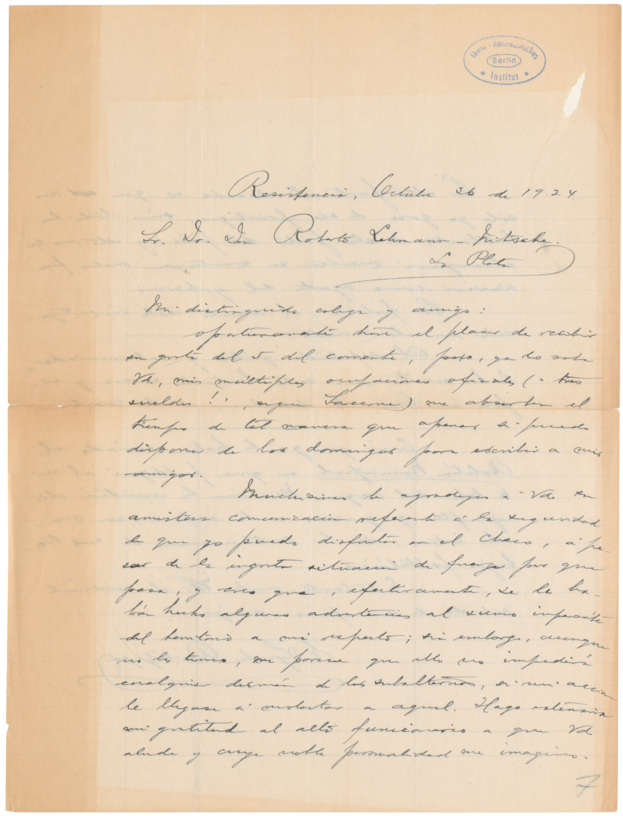 Ibero-Amerikanisches
Berlin
* Institut *
Resistencia, Octubre 26 de 1924
Sr. Dr. Dn. Roberto Lehmann-Nitsche.
La Plata
Mi distinguido colega y amigo:
oportunamente tuve el placer de recibir
su grata del 5 del corriente, pero, ya lo sabe
Vd, mis múltiples ocupaciones oficiales (¡tres
sueldos!!, segun) me absorben el
tiempo de tal manera que apenas si puedo
disponer de los domingos para escribir a mis
amigos.
Muchísimo le agradezco a Vd su
amistosa comunicación referente á la seguridad
de que yo puedo disfrutar en el Chaco, á pe-
sar de la ingrata situación de fuerza por que
pasa, y creo que, efectivamente, se le ha-
brán hecho algunas advertencias al sumo imperante
del territorio a mi respecto; sin embargo, aunque
no lo temo, me parece que ello no impedirá
cualquier desmán de los subalternos, si mi acción
le llegase á molestar a aquel. Hago extensiva
mi gratitud al alto funcionario a que Vd
alude y cuya noble personalidad me imagino.
7